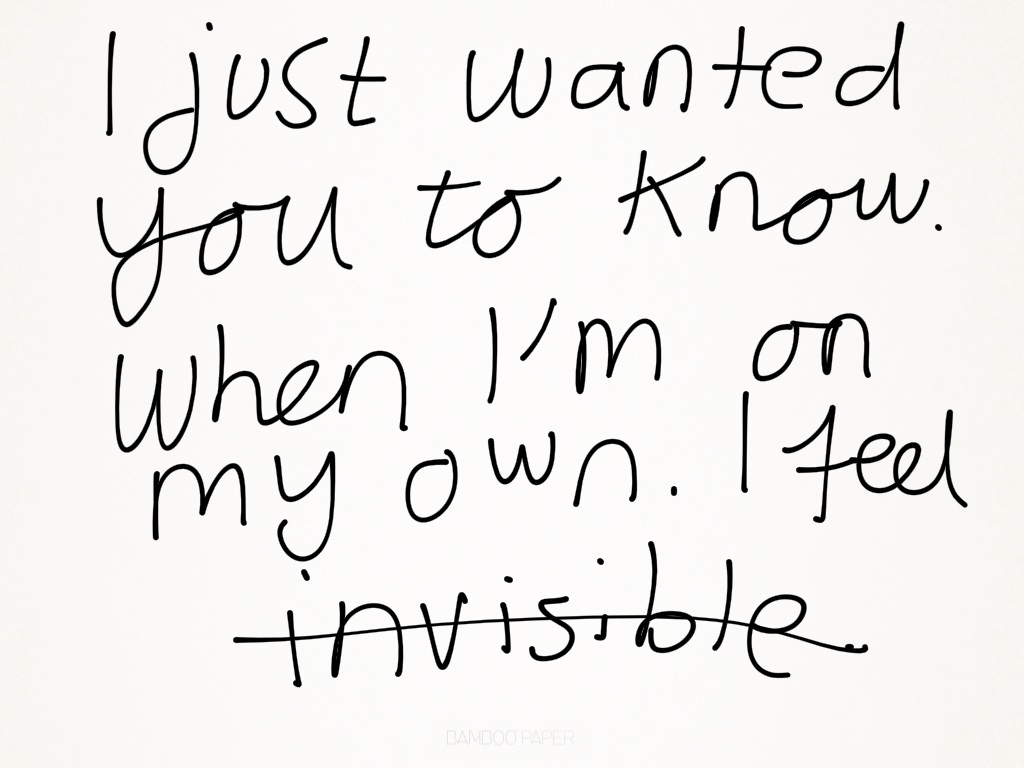 I just wanted
you to know.
When I'm on
my own. I feel
invisible
BAMBOO PAPER